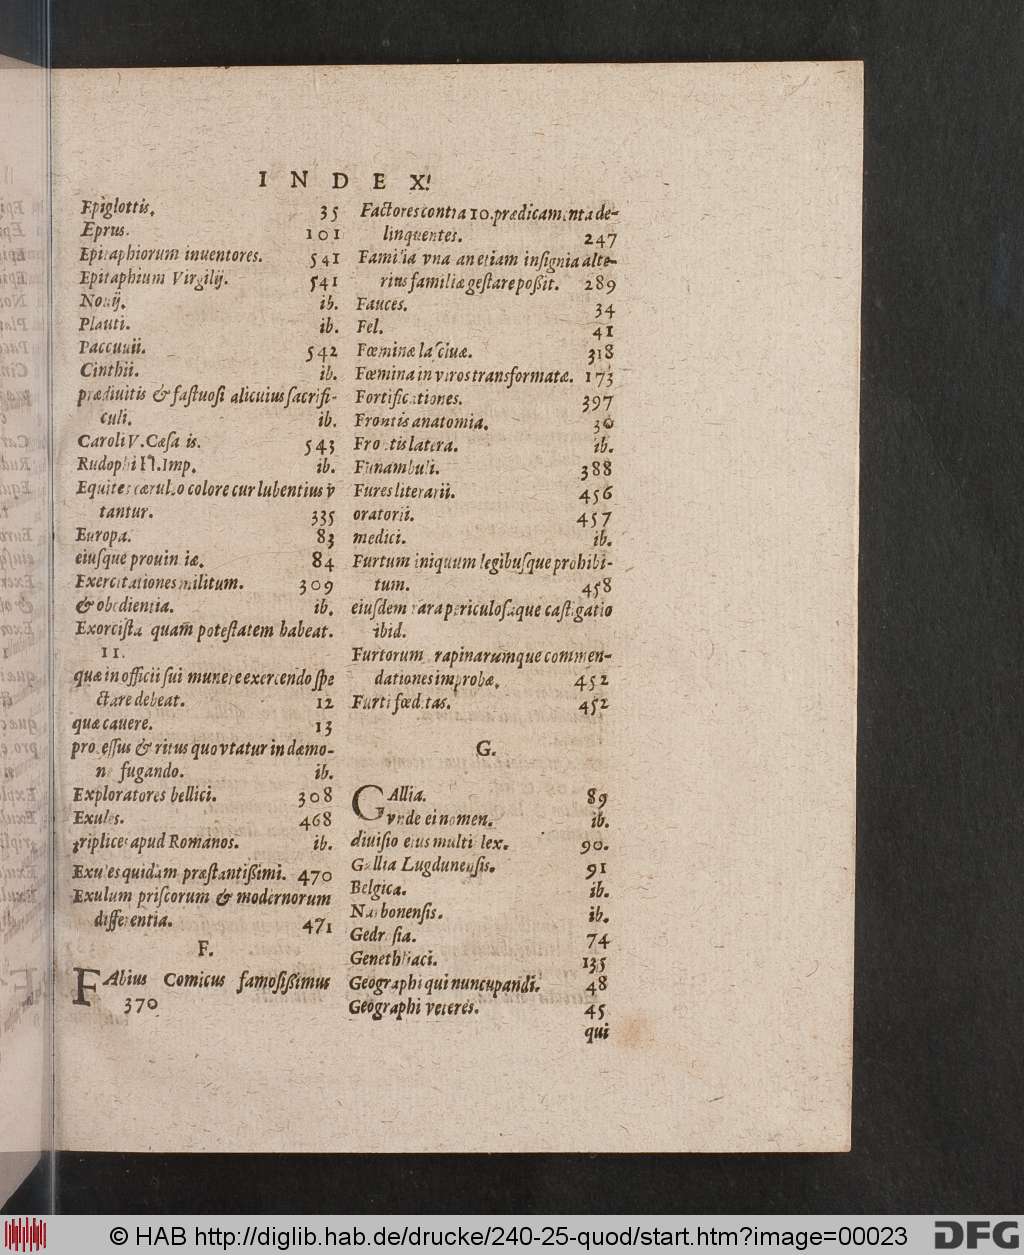 INDEX.
Epiglottis. 35
Eprus. 101
Epitaphiorum inuentores. 541
Epitaphium Virgilij. 541
Nouij. ib.
Plauti. ib.
Paccuuii. 542
Cinthii. ib.
prædiuitis & fastuosi alicuius sacrifi-
culi. ib.
Caroli V. Cæsa is. 543
Rudophi II. Imp. ib.
Equites cærulo colore cur lubentius v̄
tantur. 335
Europa. 83
eiusque prouin iæ. 84
Exercitationes militum. 309
& obedientia. ib.
Exorcista quam̄ potestatem habeat.
11.
quæ in officii sui munere exercendo spe
ctare debeat. 12
quæ cauere. 13
pro essus & ritus quo vtatur in dæmo-
n fugando. ib.
Exploratores bellici. 308
Exules. 468
triplices apud Romanos. ib.
Exules quidam præstantißimi. 470
Exulum priscorum & modernorum
differentia. 471
F.
FAbius Comicus famosißimus
370
Factores contra 10. prædicamenta de-
linquentes. 247
Familia vna an etiam insignia alte-
rius familiæ gestare poßit. 289
Fauces. 34
Fel. 41
Fœminæ lasciuæ. 318
Fœmina in viros transformatæ. 173
Fortificationes. 397
Frontis anatomia. 30
Frontis latera. ib.
Funambuli. 388
Fures literarii. 456
oratorii. 457
medici. ib.
Furtum iniquum legibusque prohibi-
tum. 458
eiusdem rara periculosaque castigatio
ibid.
Furtorum rapinarumque commen-
dationes improbæ. 452
Furti fœditas. 452
G.
GAllia. 89
vnde ei nomen. ib.
diuisio eius multiplex. 90.
Gallia Lugdunensis. 91
Belgica. ib.
Narbonensis. ib.
Gedrosia. 74
Genethliaci. 135
Geographi qui nuncupandi. 48
Geographi veteres. 45
qui
© HAB http://diglib.hab.de/drucke/240-25-quod/start.htm?image=00023
DFG